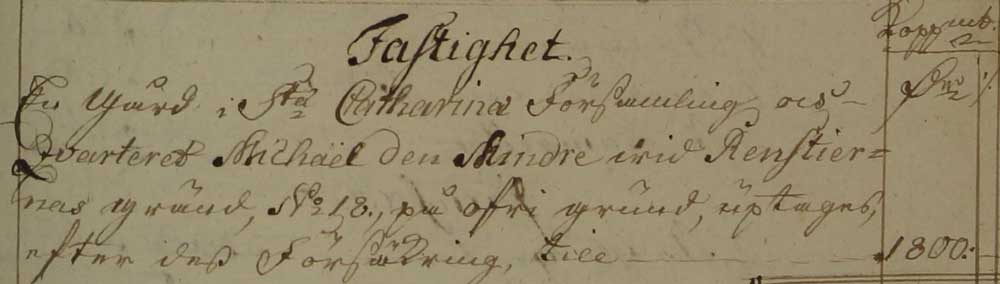 Fastighet.
Koppmt.
En Gård i Sta Catharinæ Församling och
Qvarteret Michaël den Mindre wid Renstier=
nas gränd, No 18., på ofri grund, uptages,
efter deß Försäkring, till 1800:-